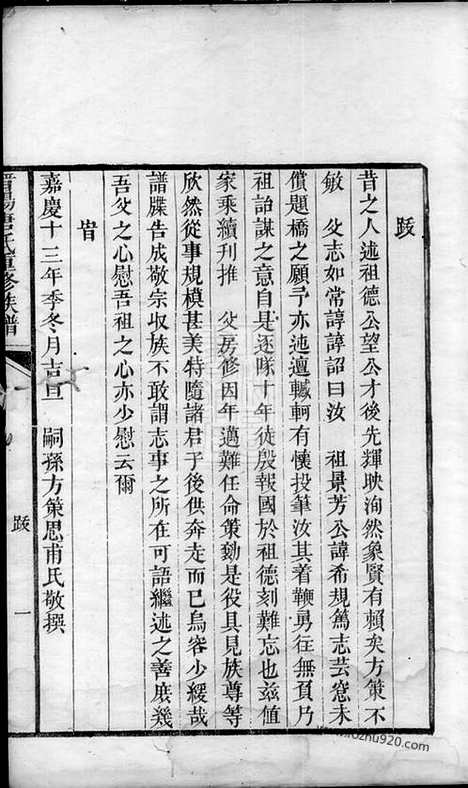 跋
昔之人述祖德公望公才後先輝映洵然象賢有賴矣方策不
敏　父志如常諄諄詔曰汝　祖景芳公諱希規篤志芸窓未
償題橋之願予亦迍邅轗軻有懷投筆汝其着鞭勇往無負乃
祖詒謀之意自是逐隊十年徒殷報國於祖德刻難忘也兹值
家乘續刊推　父房修因年邁難任命策勷是役具見族尊等
欣然從事規模甚美特隨諸君子後供奔走而已烏容少緩哉
譜牒告成敬宗收族不敢謂志事之所在可語繼述之善庶幾
吾父之心慰吾祖之心亦少慰云爾
旹
嘉慶十三年季冬月吉旦　嗣孫方策思甫氏敬撰
唐氏重修族譜
跋
一